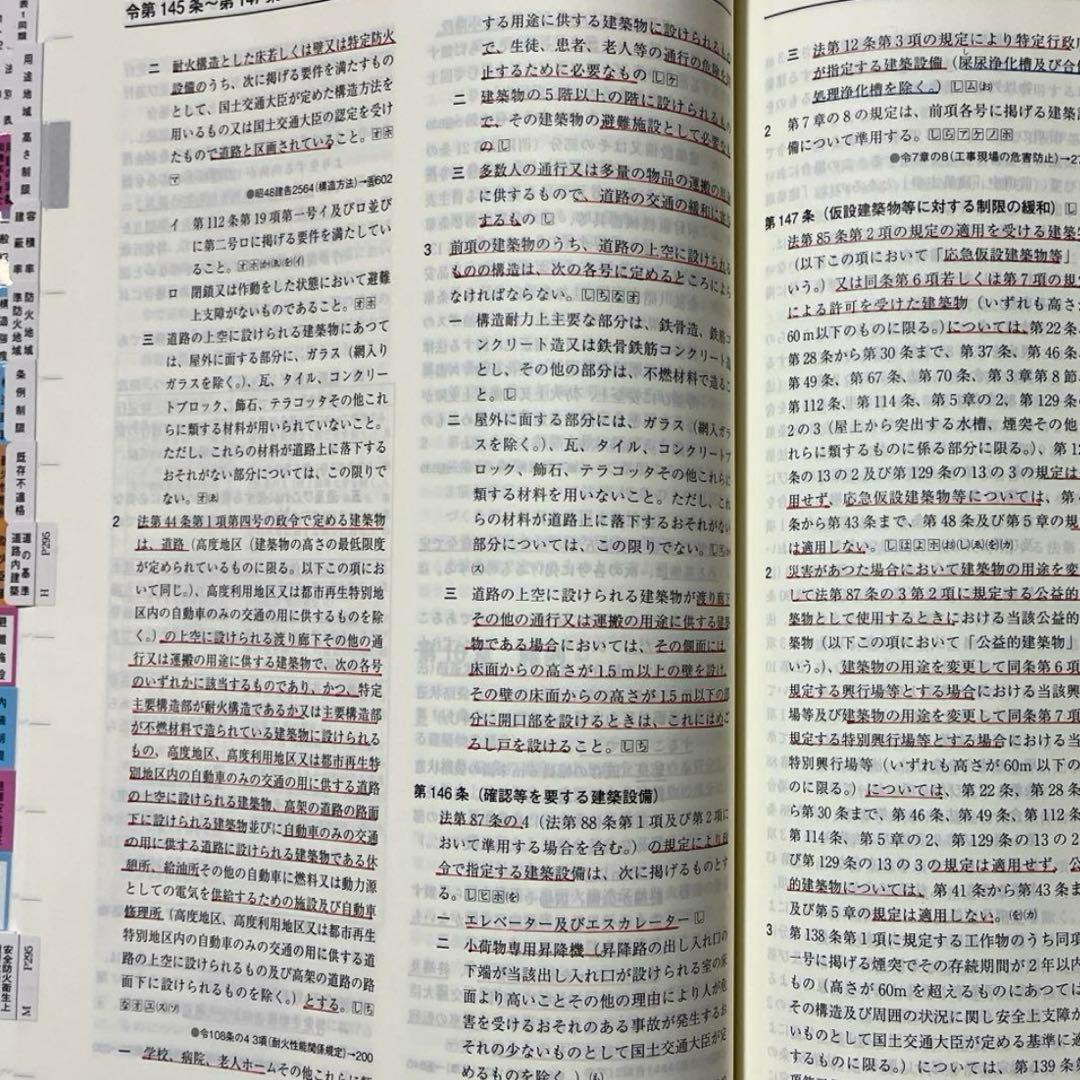 令第145条～第147条
二 耐火構造とした床若しくは壁又は特定防火
設備のうち、次に掲げる要件を満たすもの
として、国土交通大臣が定めた構造方法を
用いるもの又は国土交通大臣の認定を受け
たもので道路と区画されていること。
●昭48建告2564(構造方法)→告602
イ 第112条第19項第一号イ及びロ並び
に第二号ロに掲げる要件を満たしてい
ること。
ロ 閉鎖又は作動をした状態において避難
上支障がないものであること。
三 道路の上空に設けられる建築物にあつて
は、屋外に面する部分に、ガラス(網入り
ガラスを除く。)、瓦、タイル、コンクリー
トブロック、飾石、テラコッタその他これ
らに類する材料が用いられていないこと。
ただし、これらの材料が道路上に落下する
おそれがない部分については、この限りで
ない。
2 法第44条第1項第四号の政令で定める建築物
は、道路(高度地区(建築物の高さの最低限度
が定められているものに限る。以下この項にお
いて同じ。)、高度利用地区又は都市再生特別地
区内の自動車のみの交通の用に供するものを除
く。)の上空に設けられる渡り廊下その他の通
行又は運搬の用途に供する建築物で、次の各号
のいずれかに該当するものであり、かつ、特定
主要構造部が耐火構造であるか又は主要構造部
が不燃材料で造られている建築物に設けられる
もの、高度地区、高度利用地区又は都市再生特
別地区内の自動車のみの交通の用に供する道路
の上空に設けられる建築物、高架の道路の路面
下に設けられる建築物並びに自動車のみの交通
の用に供する道路に設けられる建築物である休
憩所、給油所その他の自動車に燃料又は動力源
としての電気を供給するための施設及び自動車
修理所(高度地区、高度利用地区又は都市再生
特別地区内の自動車のみの交通の用に供する道
路の上空に設けられるもの及び高架の道路の路
面下に設けられるものを除く。)とする。
●令108条の4 3項(耐火性能関係規定)→200
一 学校、病院、老人ホームその他これらに
する用途に供する建築物に設けられるも
で、生徒、患者、老人等の通行の危険を
止するために必要なもの
二 建築物の5階以上の階に設けられるもの
で、その建築物の避難施設として必要なも
の
三 多数人の通行又は多量の物品の運搬の用途
に供するもので、道路の交通の緩和に
するもの
3 前項の建築物のうち、道路の上空に設けられる
ものの構造は、次の各号に定めるところによら
なければならない。
一 構造耐力上主要な部分は、鉄骨造、鉄筋コ
ンクリート造又は鉄骨鉄筋コンクリート造
とし、その他の部分は、不燃材料で造るこ
と。
二 屋外に面する部分には、ガラス(網入ガラ
スを除く。)、瓦、タイル、コンクリートブ
ロック、飾石、テラコッタその他これらに
類する材料を用いないこと。ただし、これ
らの材料が道路上に落下するおそれがない
部分については、この限りでない。
三 道路の上空に設けられる建築物が渡り廊下
その他の通行又は運搬の用途に供する建築
物である場合においては、その側面には、
床面からの高さが1.5m以上の壁を設け、
その壁の床面からの高さが1.5m以下の部
分に開口部を設けるときは、これにはめご
ろし戸を設けること。
第146条(確認等を要する建築設備)
法第87条の4(法第88条第1項及び第2項に
おいて準用する場合を含む。)の規定により政
令で指定する建築設備は、次に掲げるものとす
る。
一 エレベーター及びエスカレーター
二 小荷物専用昇降機(昇降路の出し入れ口の
下端が当該出し入れ口が設けられる室の床
面より高いことその他の理由により人が危
害を受けるおそれのある事故が発生するお
それの少ないものとして国土交通大臣が定
めるものを除く。)
三 法第12条第3項の規定により特定行政
が指定する建築設備(屎尿浄化槽及び合併
処理浄化槽を除く。)
2 第7章の8の規定は、前項各号に掲げる建築設
備について準用する。
●令7章の8(工事現場の危害防止)→2
第147条(仮設建築物等に対する制限の緩和)
法第85条第2項の規定の適用を受ける建築物
(以下この項において「応急仮設建築物等」
いう。)又は同条第6項若しくは第7項の規
による許可を受けた建築物(いずれも高さ
60m以下のものに限る。)については、第22条
第28条から第30条まで、第37条、第46条
第49条、第67条、第70条、第3章第8節
第112条、第114条、第5章の2、第129条の
2の3(屋上から突出する水槽、煙突その他
れらに類するものに係る部分に限る。)、第12
条の13の2及び第129条の13の3の規定は
用せず、応急仮設建築物等については、第4
条から第43条まで、第48条及び第5章の規
は適用しない。
2 災害があつた場合において建築物の用途を変
して法第87条の3第2項に規定する公益的
築物として使用するときにおける当該公益的
築物(以下この項において「公益的建築物」
いう。)、建築物の用途を変更して同条第6項
規定する興行場等とする場合における当該興
場等及び建築物の用途を変更して同条第7項
規定する特別興行場等とする場合における当
特別興行場等(いずれも高さが60m以下の
のに限る。)については、第22条、第28条
ら第30条まで、第46条、第49条、第112条
第114条、第5章の2、第129条の13の2
び第129条の13の3の規定は適用せず、公
的建築物については、第41条から第43条ま
及び第5章の規定は適用しない。
3 第138条第1項に規定する工作物のうち同項
一号に掲げる煙突でその存続期間が2年以内
もの(高さが60mを超えるものにあつては
その構造及び周囲の状況に関し安全上支障が
いものとして国土交通大臣が定める基準に適
するものに限る。)については、第139条
用途地域
高さ制限
容積率
建蔽率
防火地域
準防火地域
条例制限
既存不適格
道の基準
道路内建築
P295
H
内装制限
P295
M